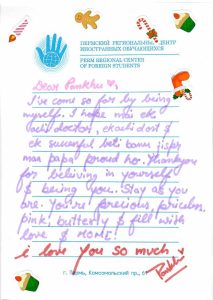 ПЕРМСКИЙ РЕГИОНАЛЬНЫЙ ЦЕНТР
ИНОСТРАННЫХ ОБУЧАЮЩИХСЯ
PERM REGIONAL CENTER
OF FOREIGN STUDENTS
Dear Pankhu ♥,
I've come so far by being
myself. I hope
doctor,
successful
papa proud ho. Thankyou
for believing in yourself
& being you. Stay as you
are. You're precious, priceless,
pink, butterfly & fill with
love & HOME!
i love you so much ♥
Pankhu
г. Пермь, Комсомольский пр., 61